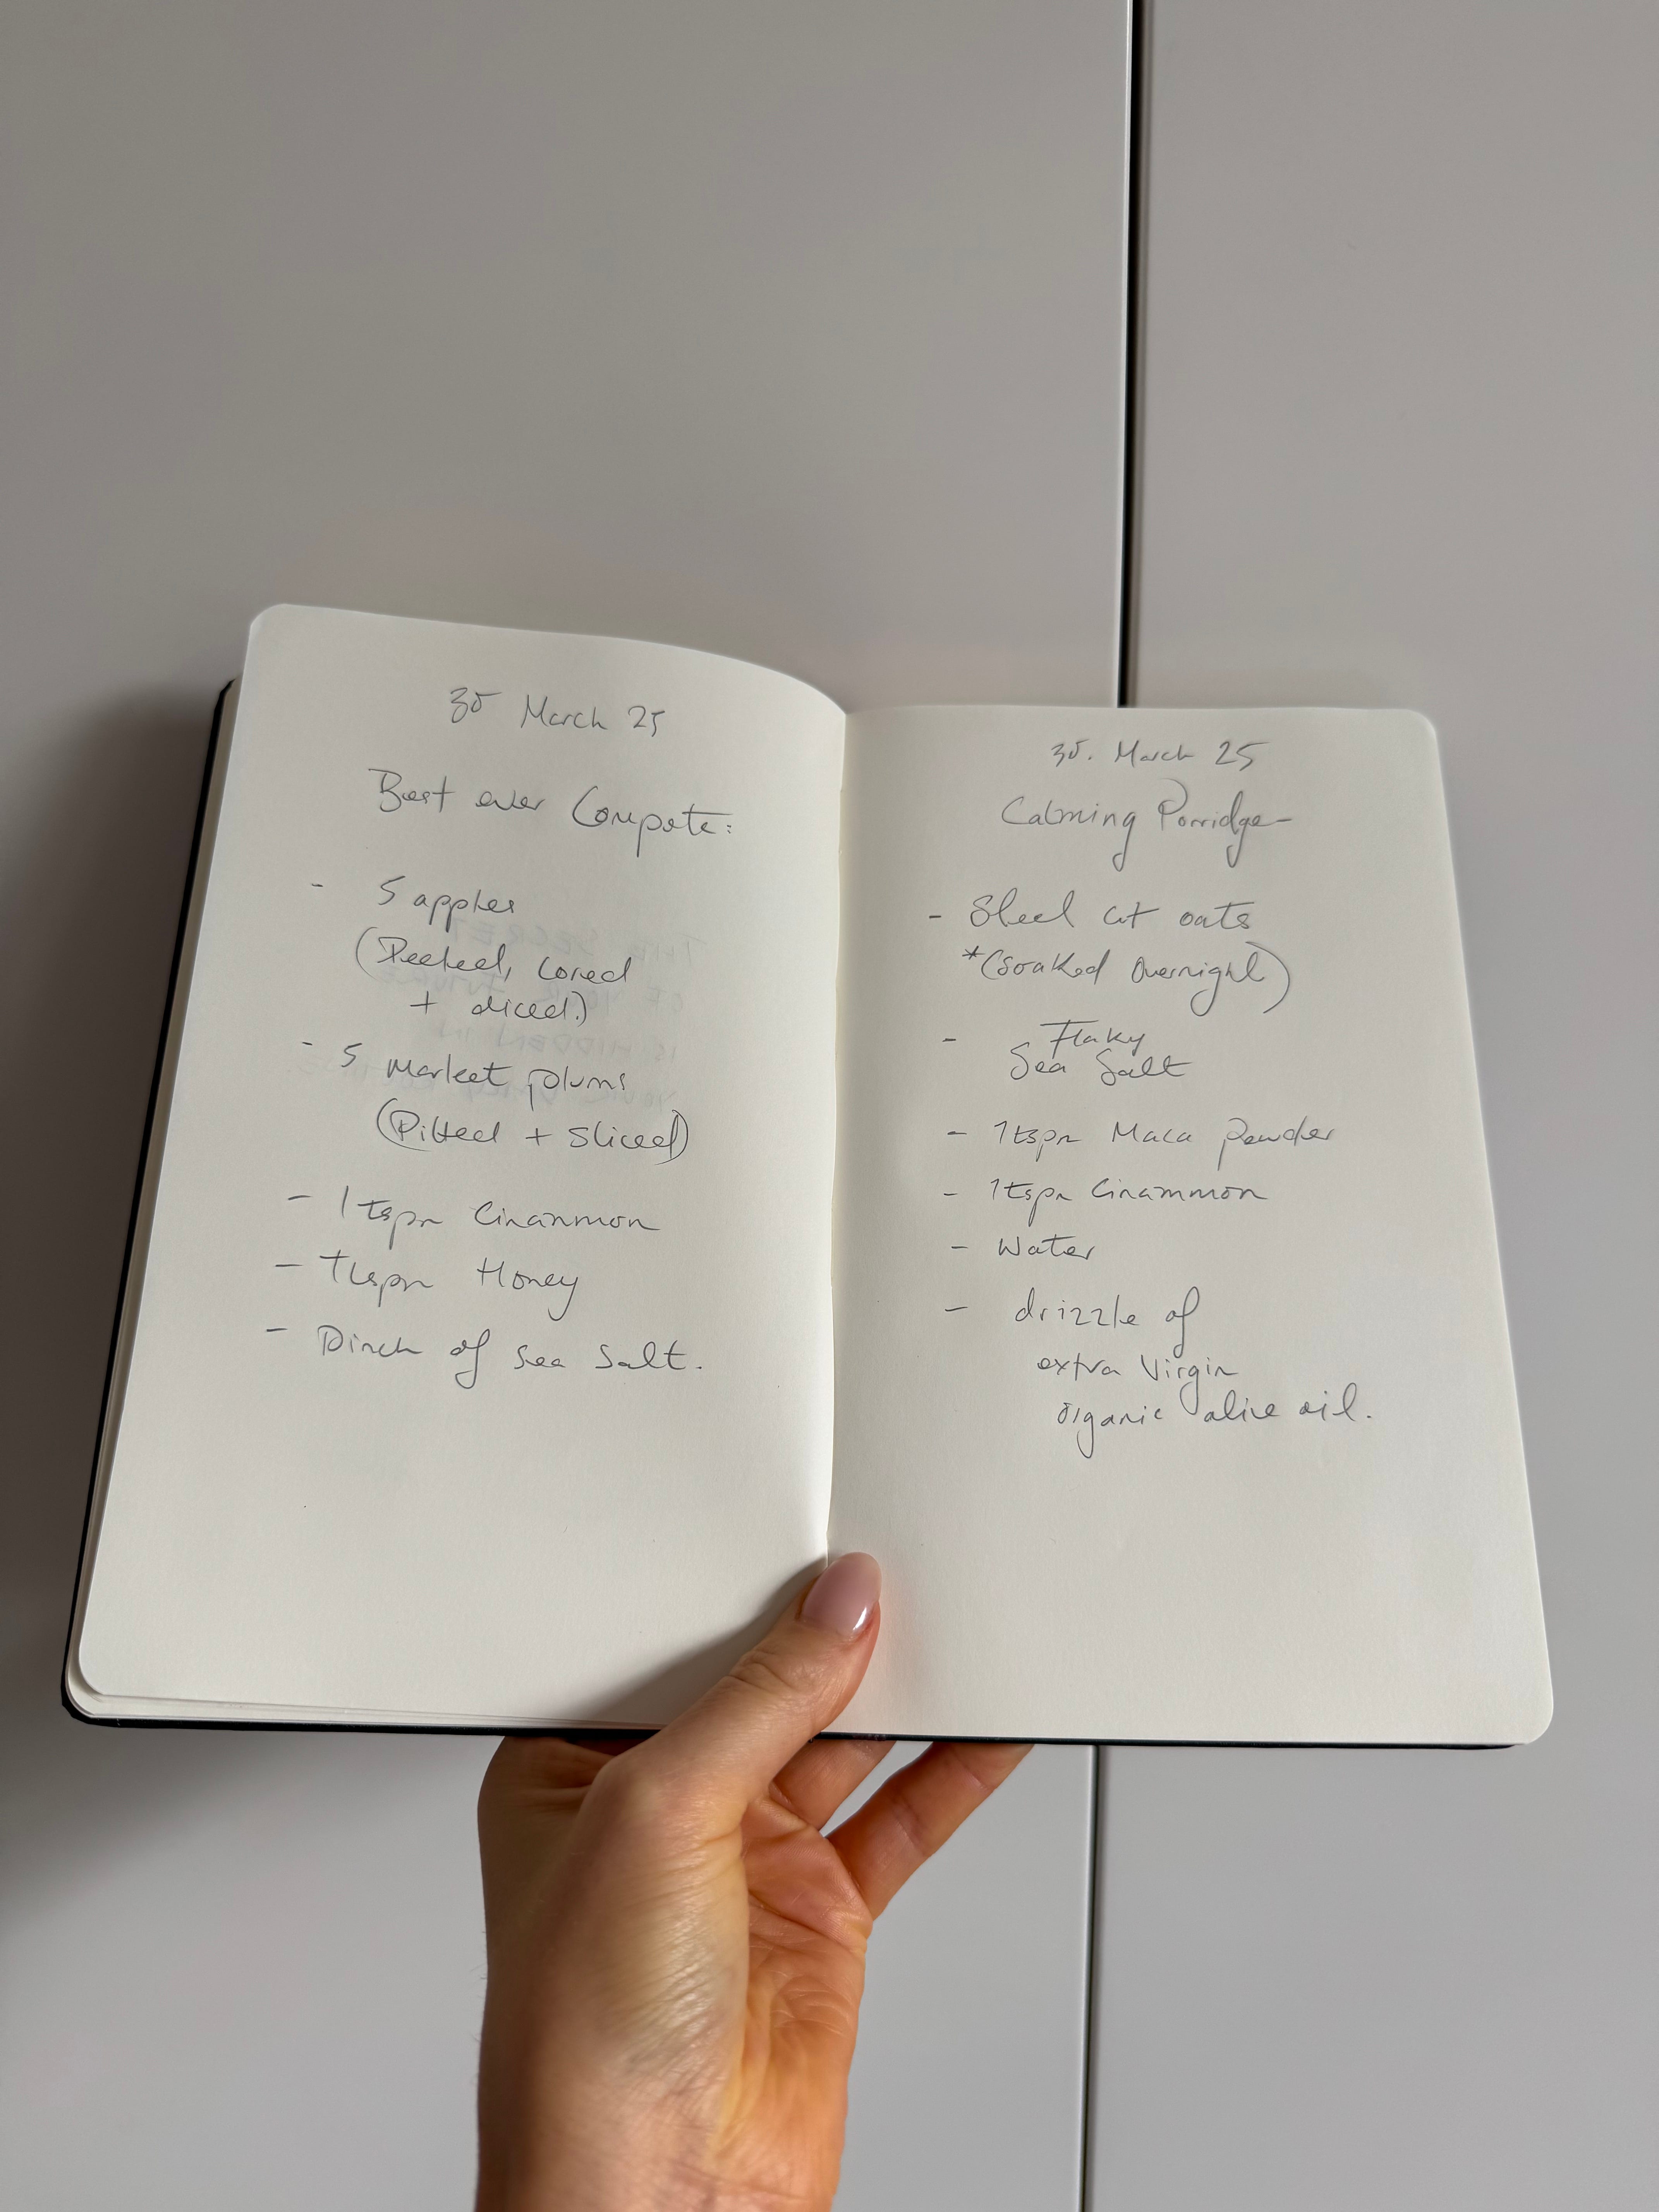 30 March 25
Best ever Compote:
- 5 apples
(Peeled, cored
+ diced.)
- 5 Market plums
(Pitted + Sliced)
- 1 tspn Cinanmon
- 1tspn Honey
- Pinch of sea salt.
30. March 25
Calming Porridge
- Steel cut oats
*(soaked overnight)
- Flaky
Sea Salt
- 1tspn Maca powder
- 1tspn Cinammon
- Water
- drizzle of
extra Virgin
organic olive oil.